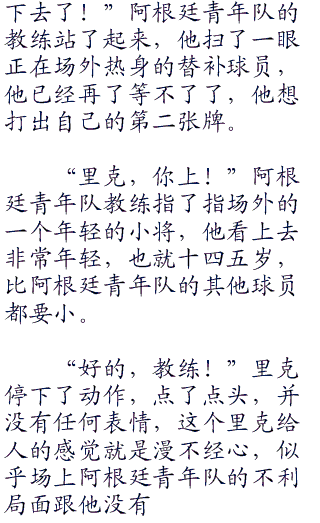 下去了！”阿根廷青年队的
教练站了起来，他扫了一眼
正在场外热身的替补球员，
他已经再了等不了了，他想
打出自己的第二张牌。
“里克，你上！”阿根
廷青年队教练指了指场外的
一个年轻的小将，他看上去
非常年轻，也就十四五岁，
比阿根廷青年队的其他球员
都要小。
“好的，教练！”里克
停下了动作，点了点头，并
没有任何表情，这个里克给
人的感觉就是漫不经心，似
乎场上阿根廷青年队的不利
局面跟他没有